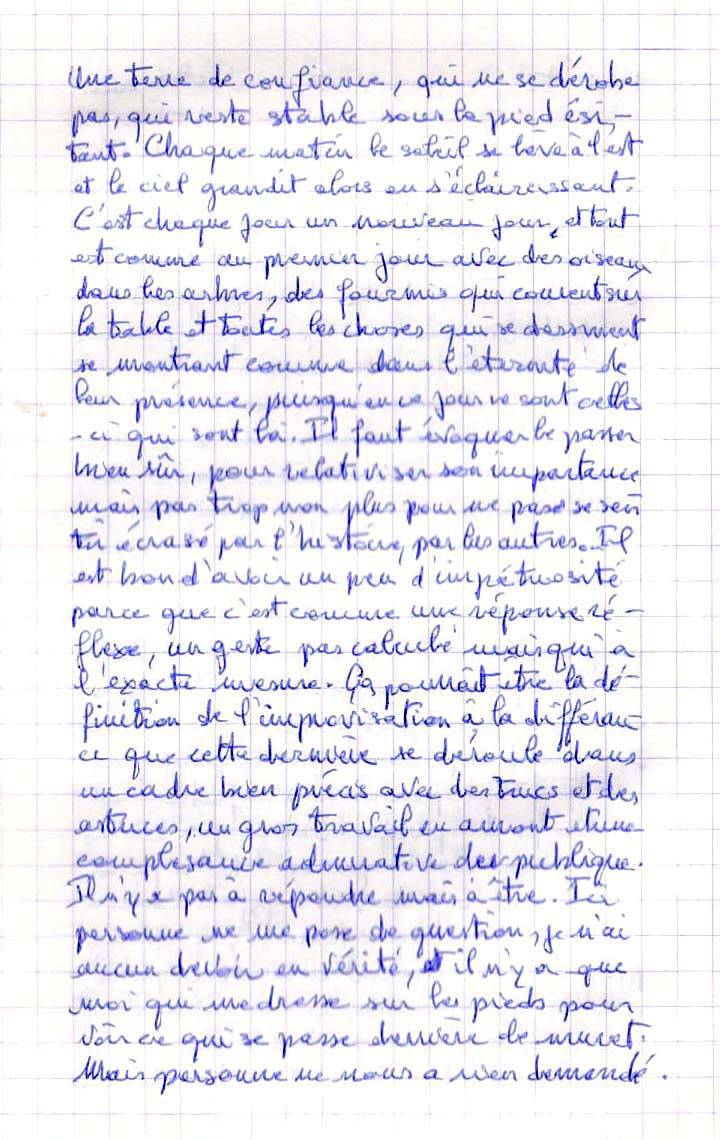 Une terre de confiance, qui ne se dérobe
pas, qui reste stable sous le pied ési,-
tant. Chaque matin le soleil se lève à l'est
et le ciel grandit alors en s'éclaircissant.
C'est chaque jour un nouveau jour, et tout
est comme au premier jour avec des oiseaux
dans les arbres, des fourmis qui courent sur
la table et toutes les choses qui se dessinent
se montrant comme dans l'éternité de
leur présence, puisqu'en ce jour ce sont celles
-ci qui sont là. Il faut évoquer le passer
bien sûr, pour relativiser son importance
mais pas trop non plus pour ne pas se sen
tir écrasé par l'histoire, par les autres. Il
est bon d'avoir un peu d'impétuosité
parce que c'est comme une réponse ré-
flexe, un geste pas calculé mais qui à
l'exacte mesure. Ça pourrait être la dé-
finition de l'improvisation à la différen-
ce que cette dernière se déroule dans
un cadre bien précis avec des trucs et des
astuces, un gros travail en amont et une
complésance admirative der publique.
Il n'y a pas à répondre mais à être. Ici
personne ne me pose de question, je n'ai
aucun devoir en vérité, et il n'y a que
moi qui me dresse sur les pieds pour
voir ce qui se passe derrière le muret.
Mais personne ne nous a rien demandé.